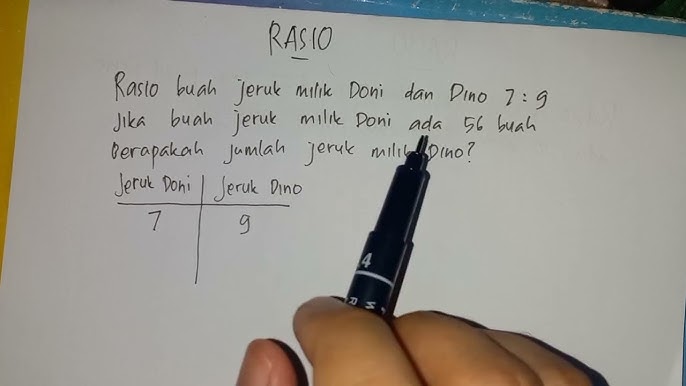 RASIO
Rasio buah jeruk milik Doni dan Dino 7 : 9
Jika buah jeruk milik Doni ada 56 buah
Berapakah jumlah jeruk milik Dino?
Jeruk Doni Jeruk Dino
7 9
4